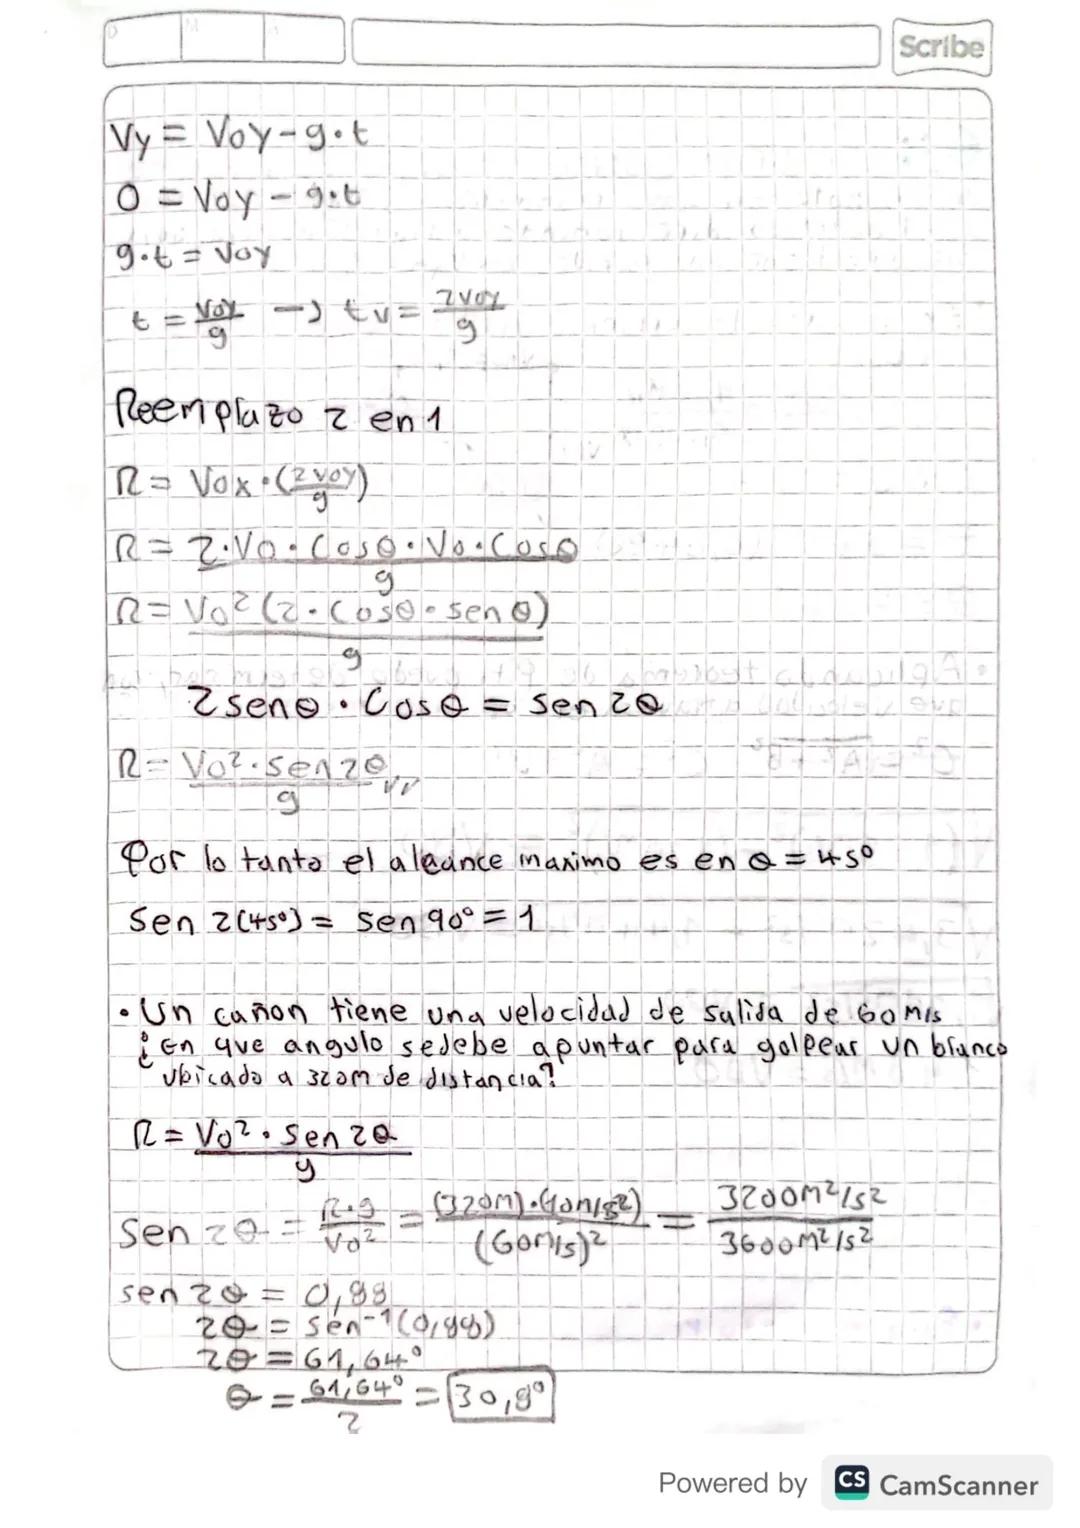 D M A
Scribe
Vy = Voy - g·t
0 = Voy - g·t
g·t = Voy
t = Voy/g → tv = 2Voy/g
Reemplazo 2 en 1
R = Vox·(2voy/g)
R = 2·Vo·Cosθ·Vo·Cosθ/g
R = Vo²(2·Cosθ·senθ)/g
2senθ·Cosθ = sen2θ
R = Vo²·sen2θ/g
Por lo tanto el alcance maximo es en θ = 45º
Sen 2(45º) = Sen 90º = 1
• Un cañon tiene una velocidad de salida de 60 m/s
¿En que angulo sedebe apuntar para golpear un blanco
ubicado a 320m de distancia?
R = Vo²·Sen2θ/g
Sen 2θ = R·g/Vo² = (320m)·(10m/s²)/(60m/s)² = 3200m²/s²/3600m²/s²
sen 2θ = 0,88
2θ = sen-¹(0,88)
2θ = 61,64º
θ = 61,64º/2 = 30,8º
Powered by CS CamScanner